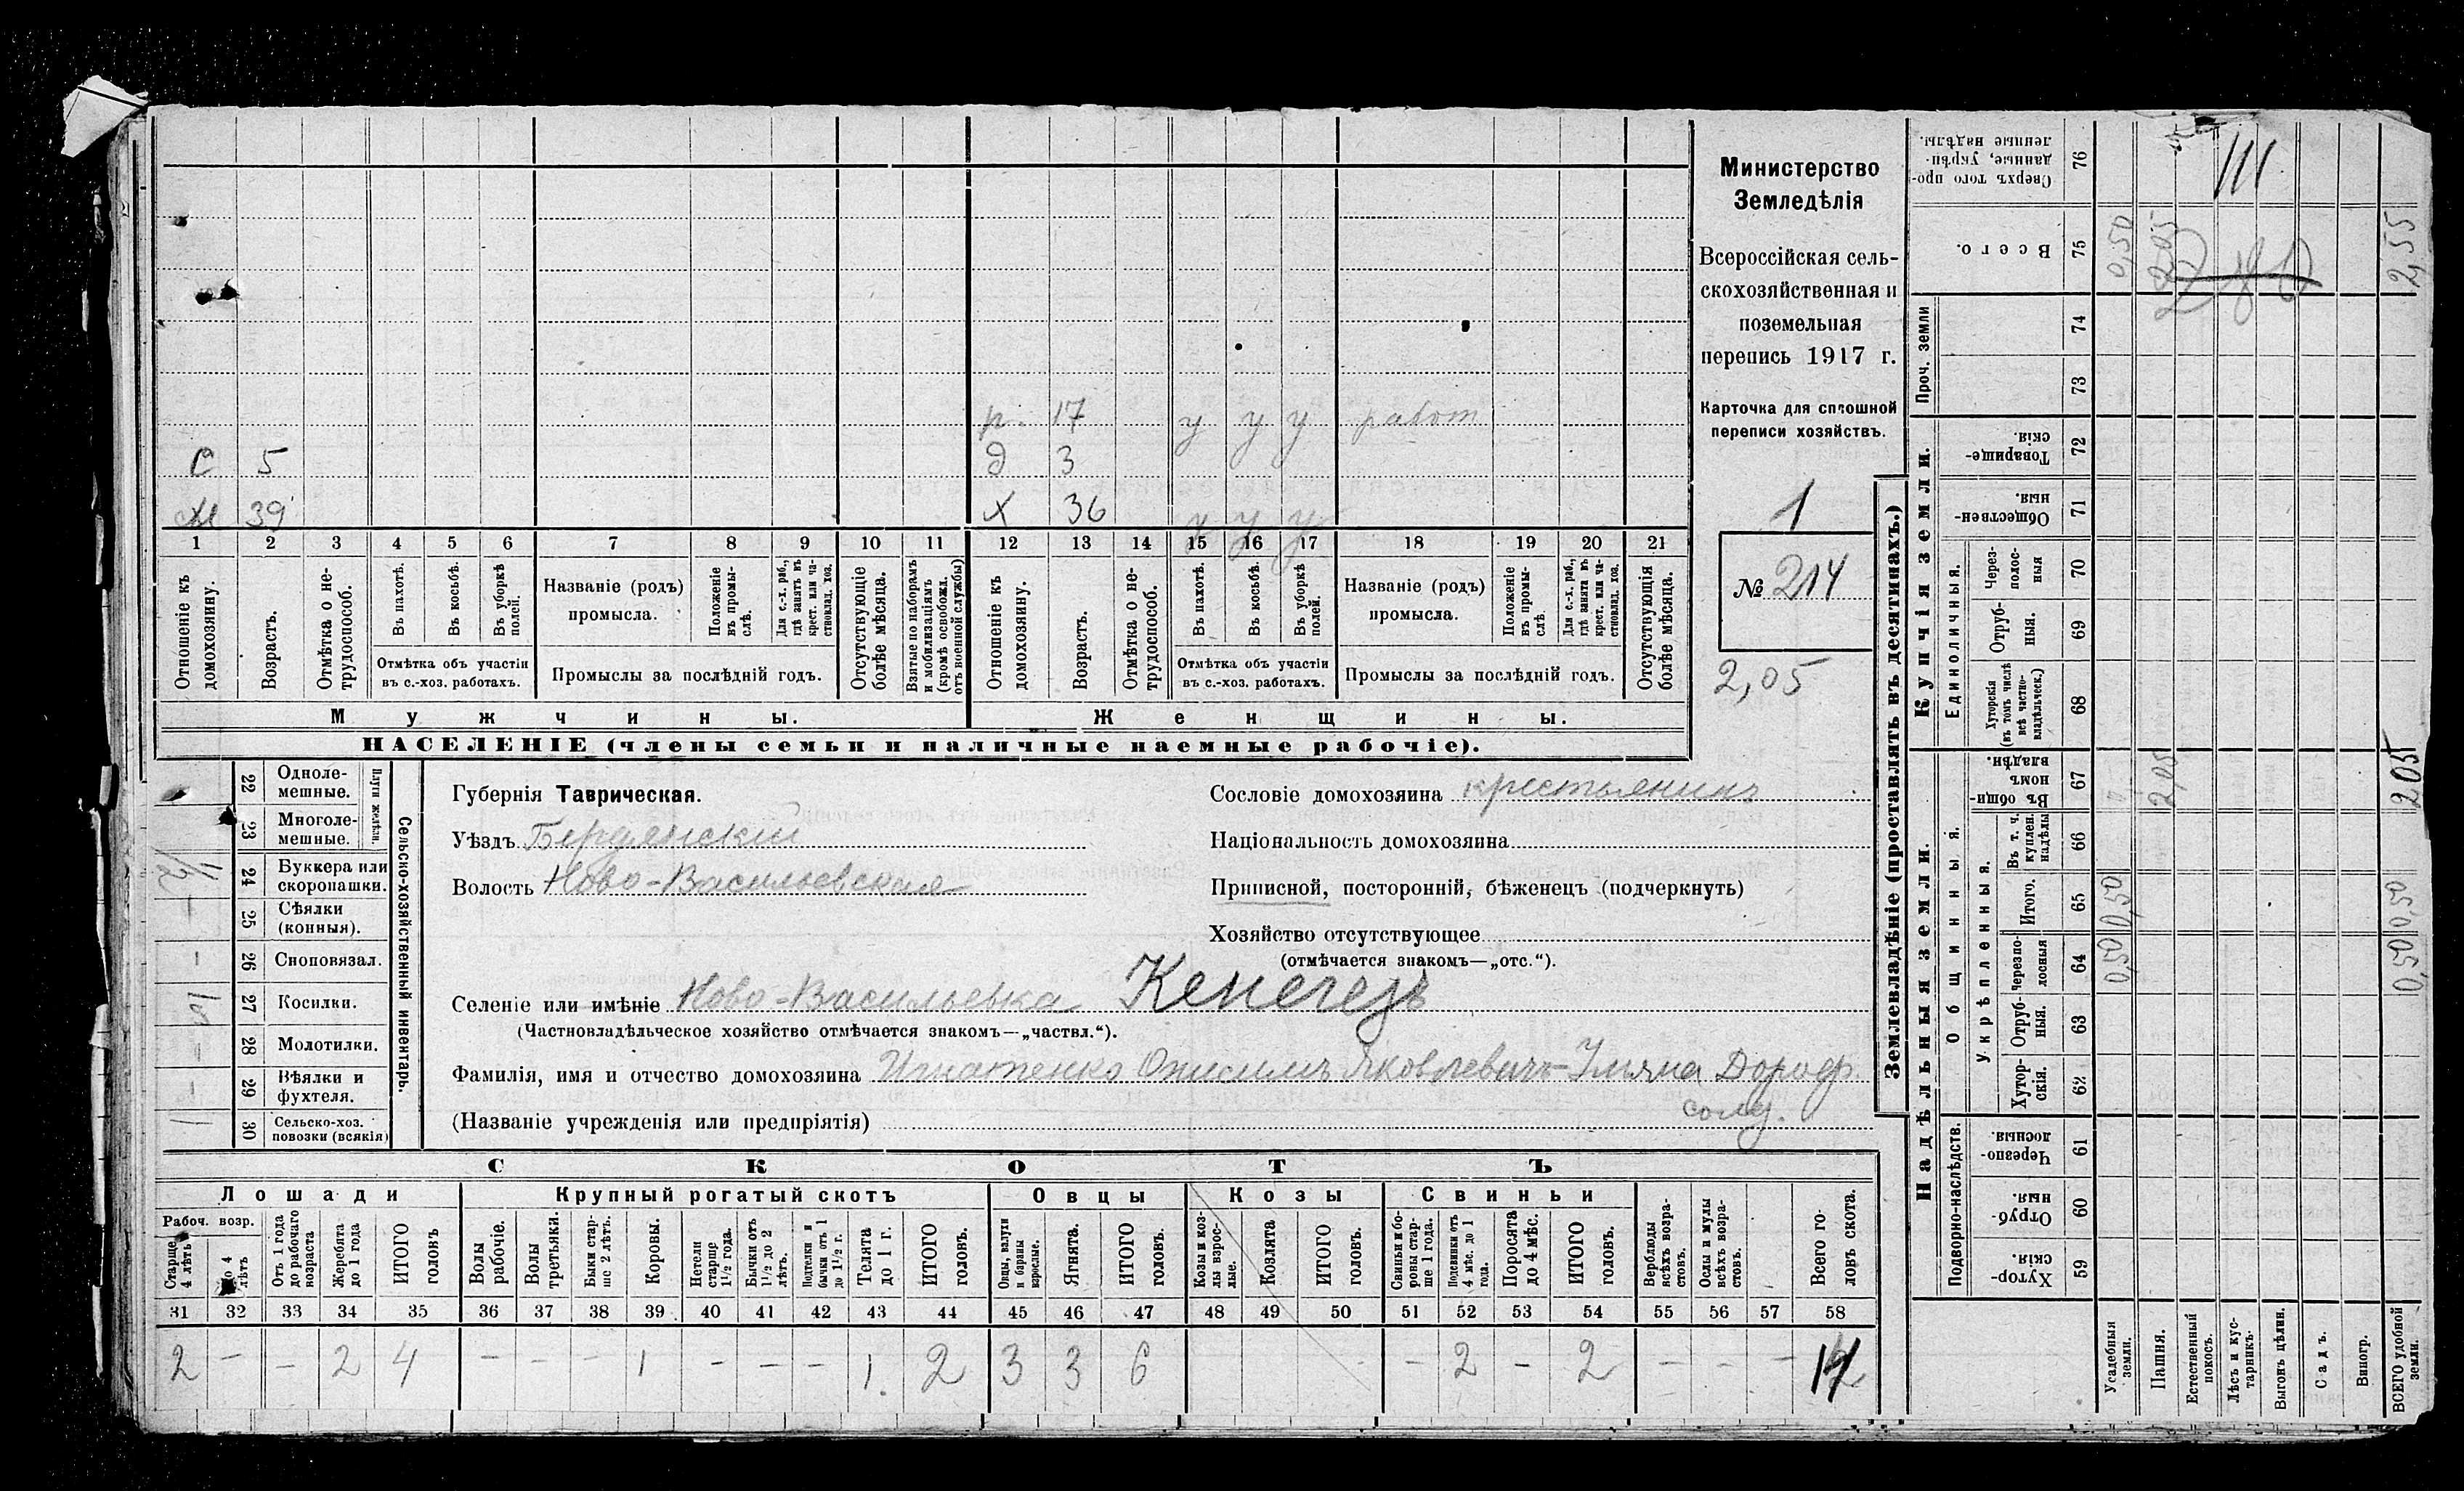 р. 17 у у у работ
С 5 д 3
М 39 Х 36 у у у
1 2 3 4 5 6 7 8 9 10 11 12 13 14 15 16 17 18 19 20 21
Отношеніе къ домохозяину.
Возрастъ.
Отмѣтка о нетрудоспособ.
Въ пахотѣ.
Въ косьбѣ.
Въ уборкѣ полей.
Отмѣтка объ участіи въ с.-хоз. работахъ.
Названіе (родъ) промысла.
Положеніе въ промыслѣ.
Для с.-х. раб., гдѣ занятъ въ крест. или частновлад. хоз.
Промыслы за послѣдній годъ.
Отсутствующіе болѣе мѣсяца.
Взятые по наборамъ и мобилизаціямъ (кромѣ освобожд. отъ военной службы)
Отношеніе къ домохозяину.
Возрастъ.
Отмѣтка о нетрудоспособ.
Въ пахотѣ.
Въ косьбѣ.
Въ уборкѣ полей.
Отмѣтка объ участіи въ с.-хоз. работахъ.
Названіе (родъ) промысла.
Положеніе въ промыслѣ.
Для с.-х. раб., гдѣ занята въ крест. или частновлад. хоз.
Промыслы за послѣдній годъ.
Отсутствующія болѣе мѣсяца.
Мужчины. Женщины.
НАСЕЛЕНІЕ (члены семьи и наличные наемные рабочіе).
Министерство
Земледѣлія
Всероссійская сель-
скохозяйственная и
поземельная
перепись 1917 г.
Карточка для сплошной
переписи хозяйствъ.
1
№ 214
2,05
22 Однолемешные.
23 Многолемешные.
Плуги желѣзн.
24 Буккера или скоропашки.
25 Сѣялки (конныя).
26 Сноповязал.
27 Косилки.
28 Молотилки.
29 Вѣялки и фухтеля.
30 Сельско-хоз. повозки (всякія)
Сельско-хозяйственный инвентарь.
Губернія Таврическая.
Уѣздъ Бердянскій
Волость Ново-Васильевская
Сословіе домохозяина крестьянинъ
Національность домохозяина
Приписной, посторонній, бѣженецъ (подчеркнуть)
Хозяйство отсутствующее
(отмѣчается знакомъ—„отс.“).
Селеніе или имѣніе Ново-Васильевка Кенегезъ
(Частновладѣльческое хозяйство отмѣчается знакомъ—„частвл.“).
Фамилія, имя и отчество домохозяина Игнатенко Онисимъ Яковлевичъ Дороф.
(Названіе учрежденія или предпріятія)
СКОТЪ
Лошади Крупный рогатый скотъ Овцы Козы Свиньи
Рабоч. возр.
Старше 4 лѣтъ
До 4 лѣтъ
Отъ 1 года до рабочаго возраста
Жеребята до 1 года
ИТОГО головъ
Волы рабочіе.
Волы третьяки.
Быки старше 2 лѣтъ.
Коровы.
Нетели старше 1½ года.
Бычки отъ 1½ до 2 лѣтъ.
Подтелки и бычки отъ 1 до 1½ г.
Телята до 1 г.
ИТОГО головъ.
Овцы, валухи и бараны взрослые.
Ягнята.
ИТОГО головъ.
Козы и козлы взрослые.
Козлята
ИТОГО головъ.
Свиньи и боровы старше 1 года.
Подсвинки отъ 4 мѣс. до 1 года.
Поросята до 4 мѣс.
ИТОГО головъ.
Верблюды всѣхъ возрастовъ.
Ослы и мулы всѣхъ возрастовъ.
Всего головъ скота.
31 32 33 34 35 36 37 38 39 40 41 42 43 44 45 46 47 48 49 50 51 52 53 54 55 56 57 58
2 - - 2 4 - - - 1 - - - 1. 2 3 3 6 - 2 - 2 - - - 14
Землевладѣніе (проставлять въ десятинахъ.)
Надѣльныя земли. Купчія земли.
Проч. земли
Подворно-наслѣдств.
Общинныя.
Укрѣпленныя.
Единоличныя.
76 Сверхъ того проданные, укрѣпленные надѣлы.
75 Всего. 0,50 2,05 2,55
74
73
72 Товарищескія.
71 Общественныя.
70 Черезполосныя
69 Отрубныя.
68 Хуторскія (въ томъ числѣ всѣ частновладѣльческ.)
67 Въ общинномъ владѣн. 2,05 2,05
66 Въ т. ч. куплен. надѣлы
65 Итого. 0,50 0,50
64 Черезполосныя 0,50 0,50
63 Отрубныя.
62 Хуторскія.
61 Черезполосныя.
60 Отрубныя.
59 Хуторскія
Усадебныя земли.
Пашня.
Естественный покосъ.
Лѣсъ и кустарникъ.
Выгонъ цѣлин.
Садъ.
Виногр.
ВСЕГО удобной земли.